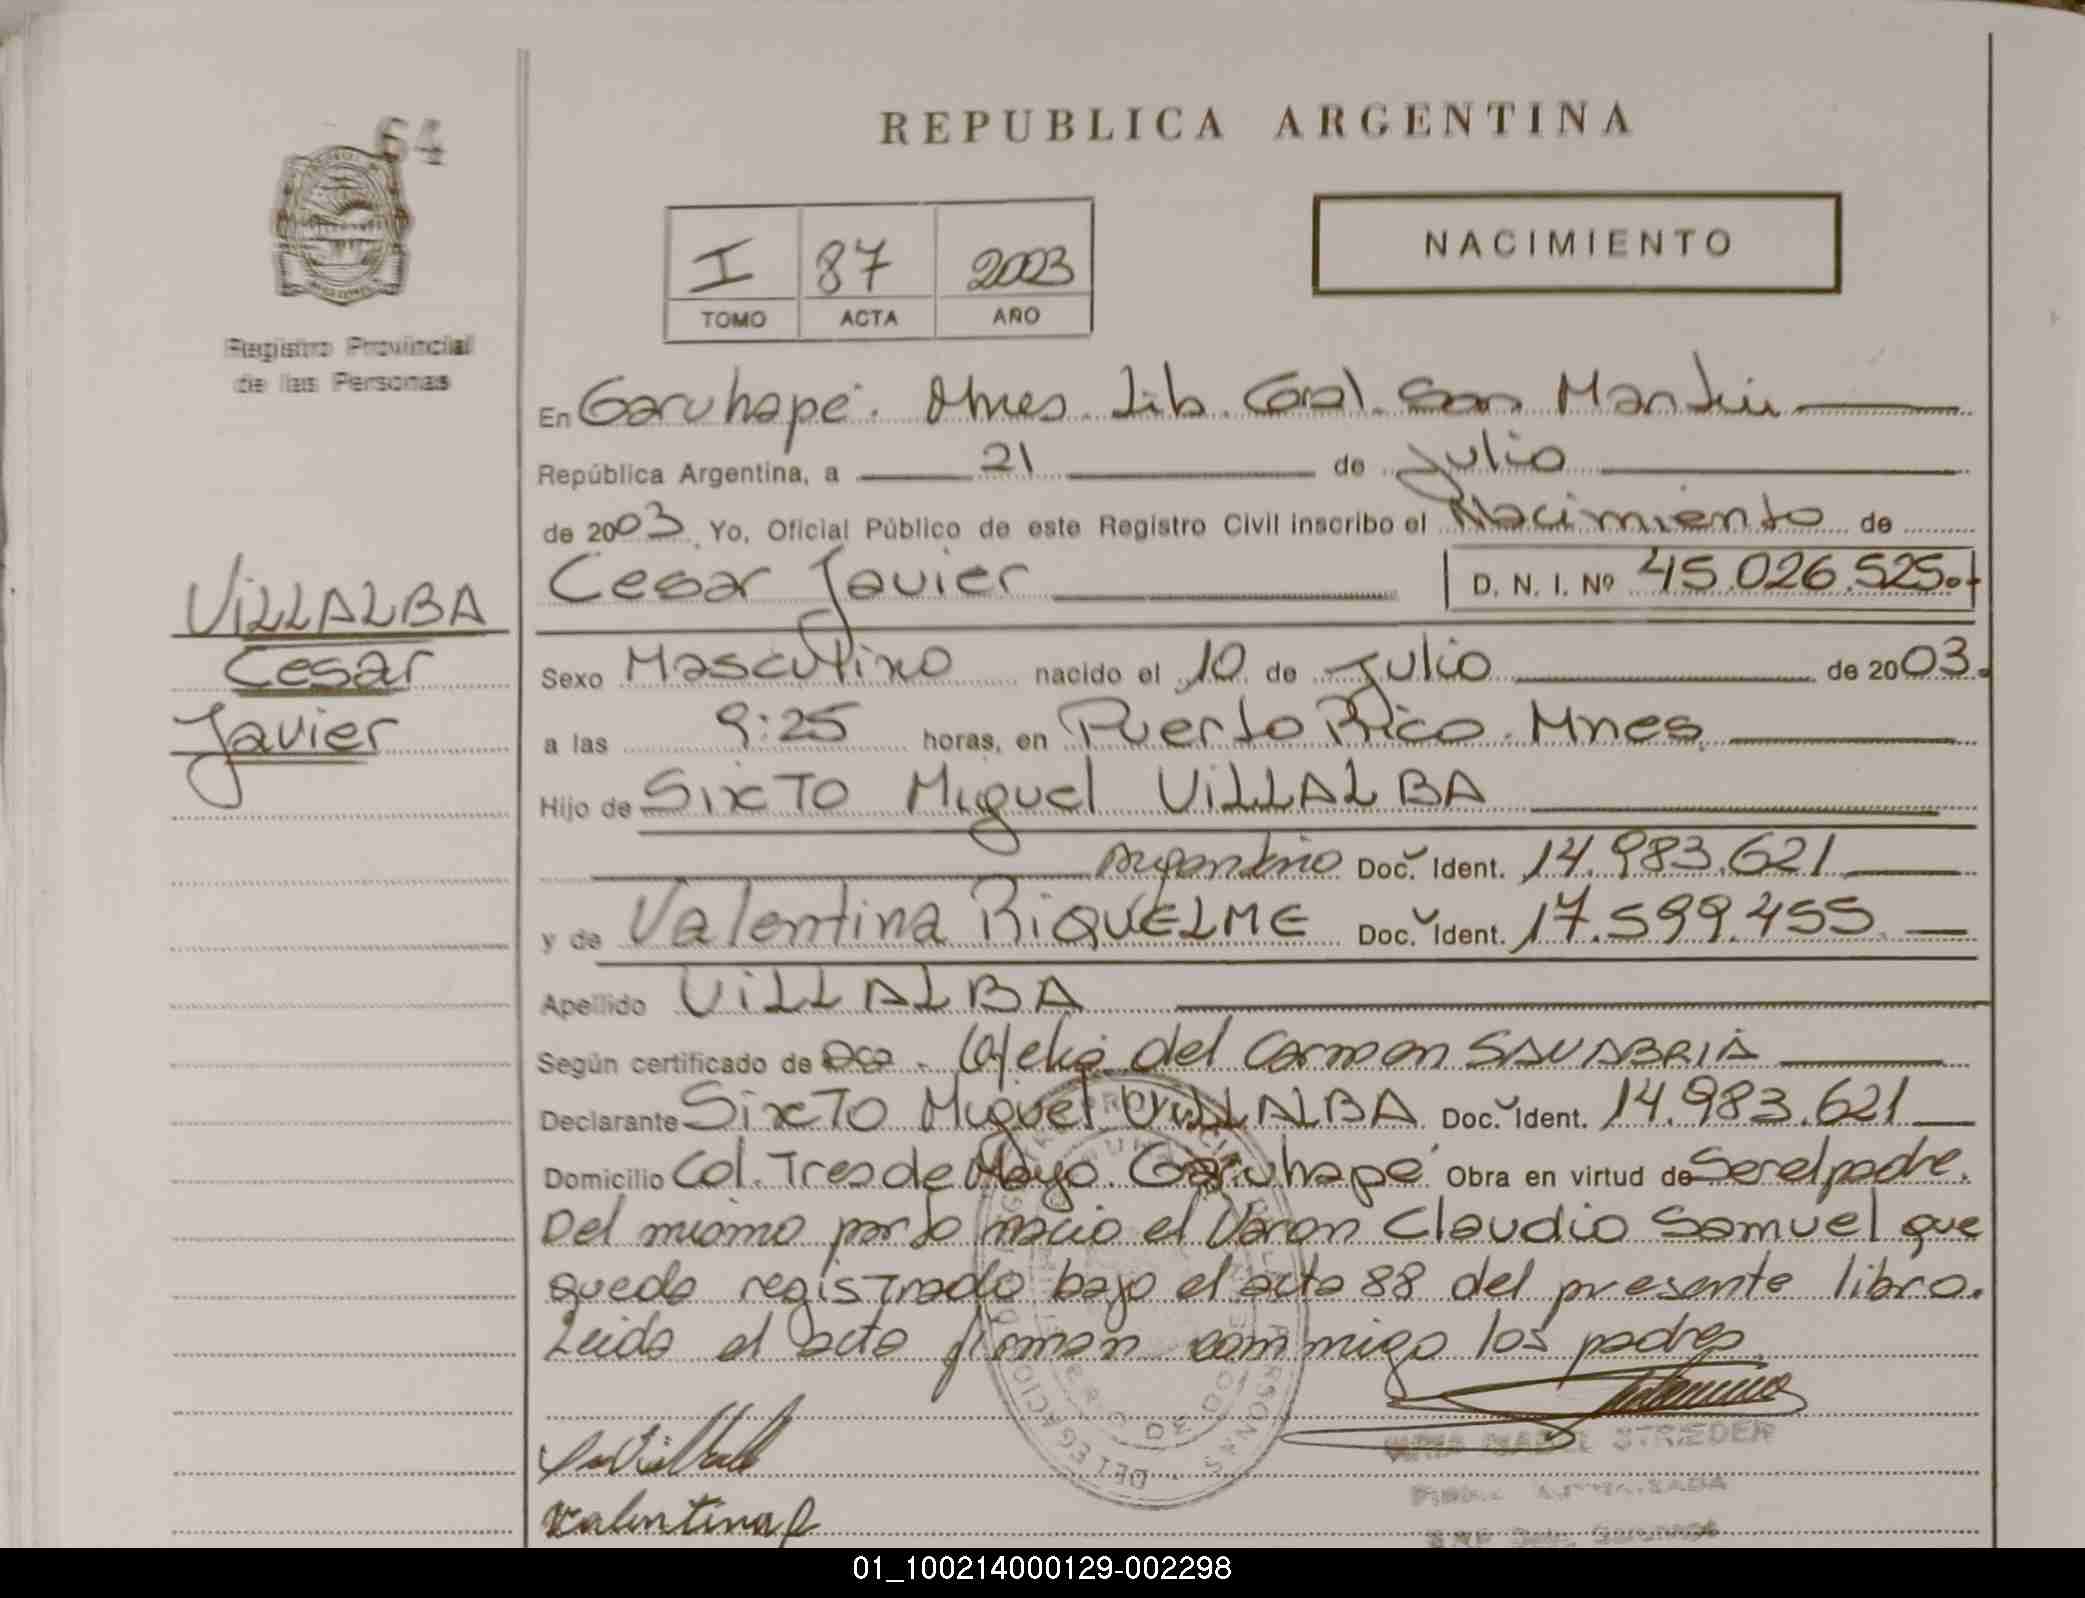 64
REPUBLICA ARGENTINA
NACIMIENTO
I 87 2003
TOMO ACTA AÑO
Registro Provincial
de las Personas
En Garuhapé. Mnes. Lib. Gral. San Martín
República Argentina, a 21 de Julio
de 2003. Yo, Oficial Público de este Registro Civil inscribo el Nacimiento de
Cesar Javier D. N. I. Nº 45.026.525.
VILLALBA
Cesar
Javier
Sexo Masculino nacido el 10 de Julio de 2003.
a las 9:25 horas, en Puerto Rico. Mnes.
Hijo de Sixto Miguel VILLALBA
Argentino Doc. Ident. 14.983.621
y de Valentina RIQUELME Doc. Ident. 17.599.455
Apellido VILLALBA
Según certificado de del Carmen SANABRIA
Declarante Sixto Miguel VILLALBA Doc. Ident. 14.983.621
Domicilio Col. Tres de Mayo. Garuhapé Obra en virtud de Ser el padre.
Del mismo parto nacio el Varon Claudio Samuel que
queda registrado bajo el acta 88 del presente libro.
Leida el acta firman conmigo los padres.
STRIEDER
Valentina R
01_100214000129-002298